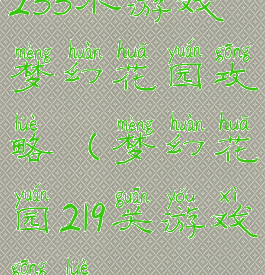 233 游戏
mèng huàn huā yuán gōng
梦幻花园攻
lüè mèng huàn huā
略（梦幻花
yuán guān yóu xì
园219关游戏
gōng lüè